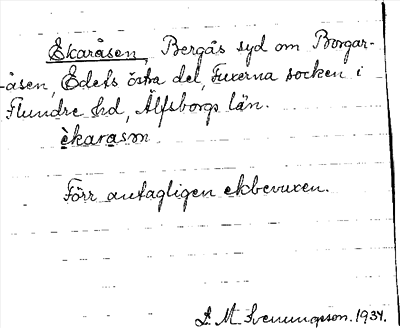 Ekaråsen, Bergås syd om Borgar-
åsen, Edets östra del, Fuxerna socken i
Flundre hd, Älfsborgs län.
èkarasm
Förr antagligen ekbevuxen.
L. M. Svenungsson. 1934.